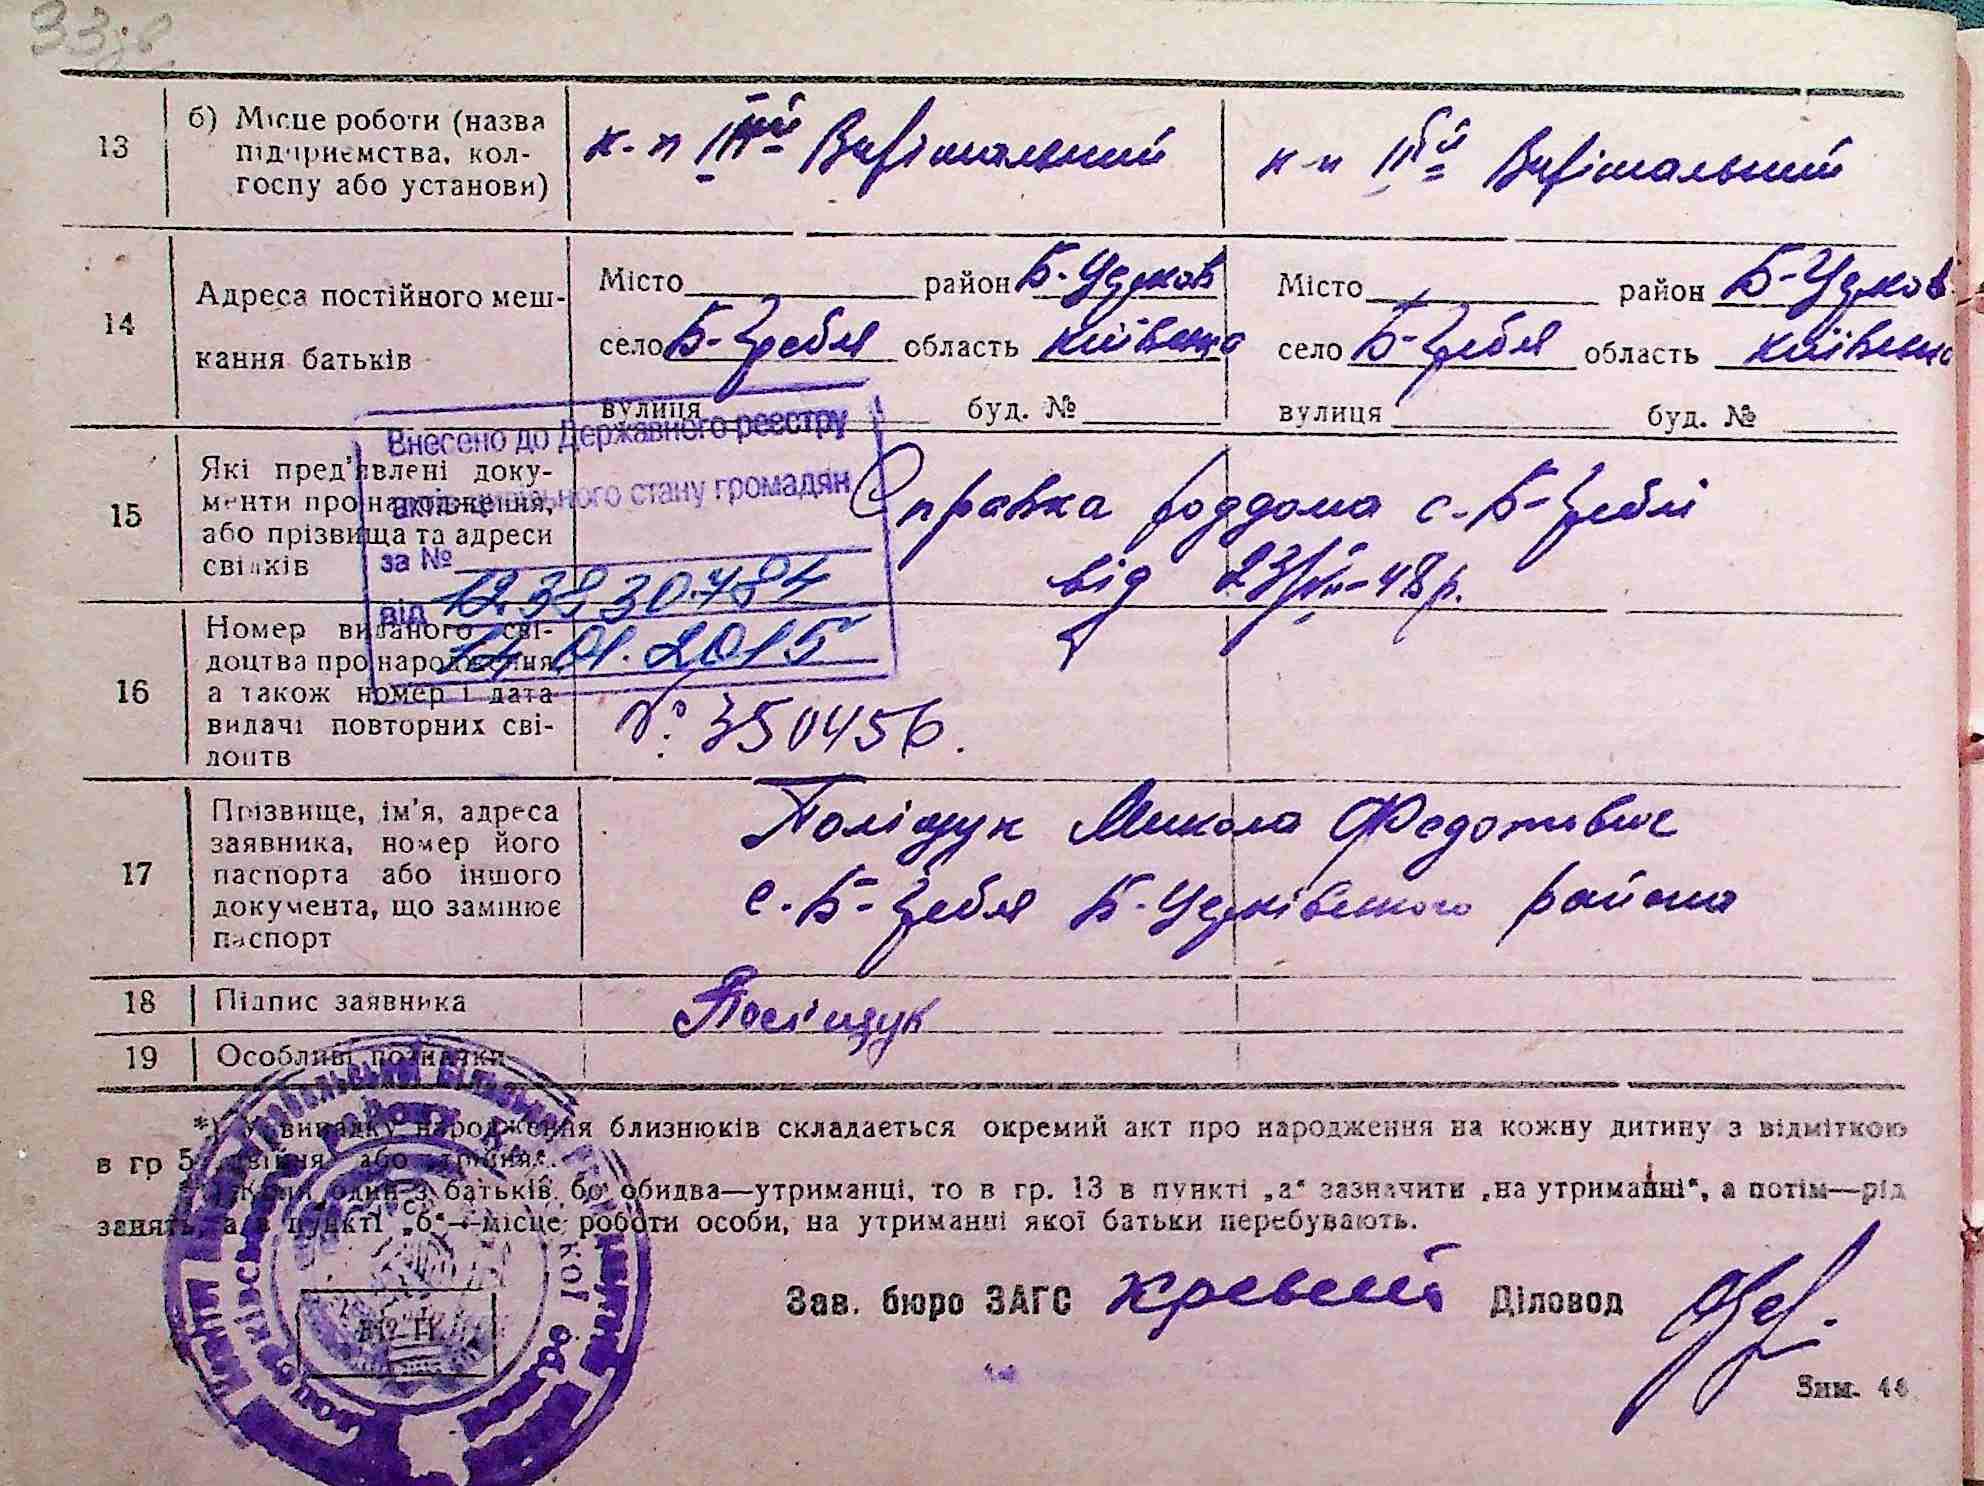 33
13
б) Місце роботи (назва
підприємства, кол-
госпу або установи)
к-п ІІІий Вирішальний
к-п ІІІий Вирішальний
14
Адреса постійного меш-
кання батьків
Місто район Б-Церков
село Б-Гребля область Київська
вулиця буд. №
Місто район Б-Церков
село Б-Гребля область Київська
вулиця буд. №
Внесено до Державного реєстру
актів цивільного стану громадян
за № 123830484
від 14.01.2015
15
Які пред'явлені доку-
менти про народження,
або прізвища та адреси
свідків
Справка роддома с. Б-Греблі
від 23/XII-48 р.
16
Номер виданого сві-
доцтва про народження
а також номер і дата
видачі повторних сві-
доцтв
№ 350456.
17
Прізвище, ім'я, адреса
заявника, номер його
паспорта або іншого
документа, що замінює
паспорт
Поліщук Микола Федотович
с. Б-Гребля Б-Церківського района
18
Підпис заявника
Поліщук
19
Особливі позначки
*) У випадку народження близнюків складається окремий акт про народження на кожну дитину з відміткою
в гр 5 „двійня" або „трійня".
Коли один з батьків бо обидва—утриманці, то в гр. 13 в пункті „а" зазначити „на утриманні", а потім—рід
занять, а в пункті „б"—місце роботи особи, на утриманні якої батьки перебувають.
Зав. бюро ЗАГС Діловод
Зим. 44